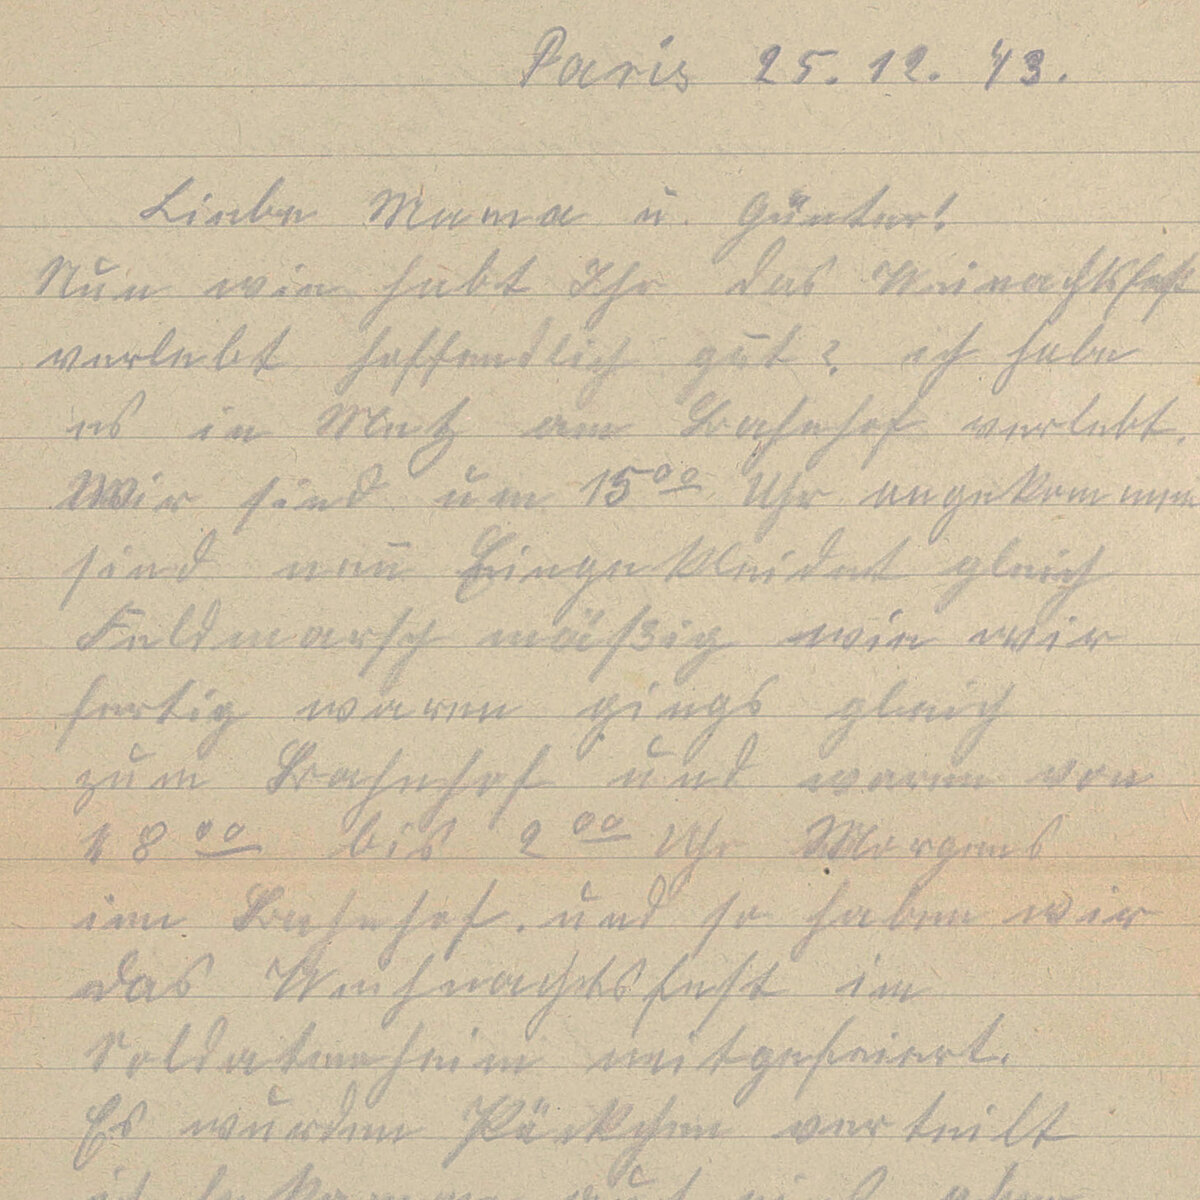 Paris 25.12.43.
Liebe Mama u. Günter!
Nun wie habt Ihr das Weinachtsfest
verlebt hoffendlich gut? ich habe
es in Metz am Bahnhof verlebt.
Wir sind um 15⁰⁰ Uhr angekommen
sind neu Eingekleidet gleich
Feldmarsch mäßig wie wir
fertig waren gings gleich
zum Bahnhof und waren von
18⁰⁰ bis 2⁰⁰ Uhr Morgens
im Bahnhof. und so haben wir
das Weihnachtsfest im
Soldatenheim mitgefeiert.
Es wurden Päckchen verteilt